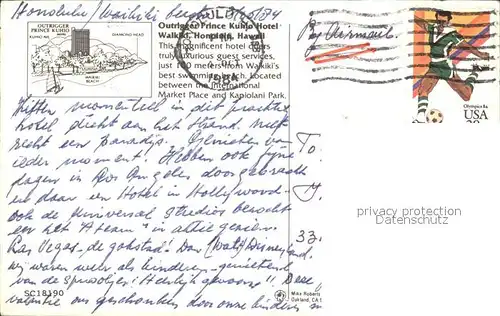 Honolulu / Waikiki
OUTRIGGER
PRINCE KUHIO
HOTEL
KUHIO AVE.
DIAMOND HEAD
WAIKIKI
BEACH
Outrigger Prince Kuhio Hotel
Waikiki, Honolulu, Hawaii
This magnificent hotel offers
truly luxurious guest services,
just 100 meters from Waikiki's
best swimming beach. Located
between the International
Market Place and Kapiolani Park.
1984
By Airmail
Olympics 84
USA
Zitten momenteel in dit prachtige
hotel dicht aan het strand. Zelf
recht een paradijs. Genieten van
ieder moment. Hebben ook fijne
dagen in Los Angeles doorgebracht
en daar en Hotel in Hollywood
ook de Universal Studios bezocht
en het "A team" in actie gezien.
Las Vegas, de gokstad! Dan (Walt) Disneyland,
wij waren weer als kinderen genietend
van de sprookjes! Heerlijk gewoon!! Deze
vakantie ons geschonken door onze kinderen
To:
33.
privacy protection
Datenschutz
SC18190
Mike Roberts
Oakland, CA